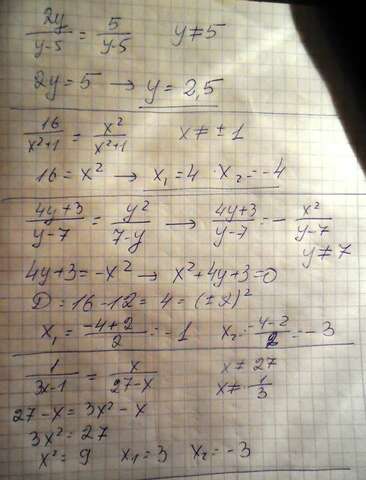 2y/(y-5) = 5/(y-5)    y≠5
2y=5 → y=2,5
16/(x²+1) = x²/(x²+1)    x≠±1
16=x² → x₁=4 · x₂=-4
(4y+3)/(y-7) = y²/(7-y) → (4y+3)/(y-7) = -x²/(y-7)
y≠7
4y+3=-x² → x²+4y+3=0
D=16-12=4=(±2)²
x₁=(-4+2)/2=-1    x₂=(-4-2)/2=-3
1/(3x-1) = x/(27-x)    x≠27
x≠1/3
27-x=3x²-x
3x²=27
x²=9    x₁=3    x₂=-3